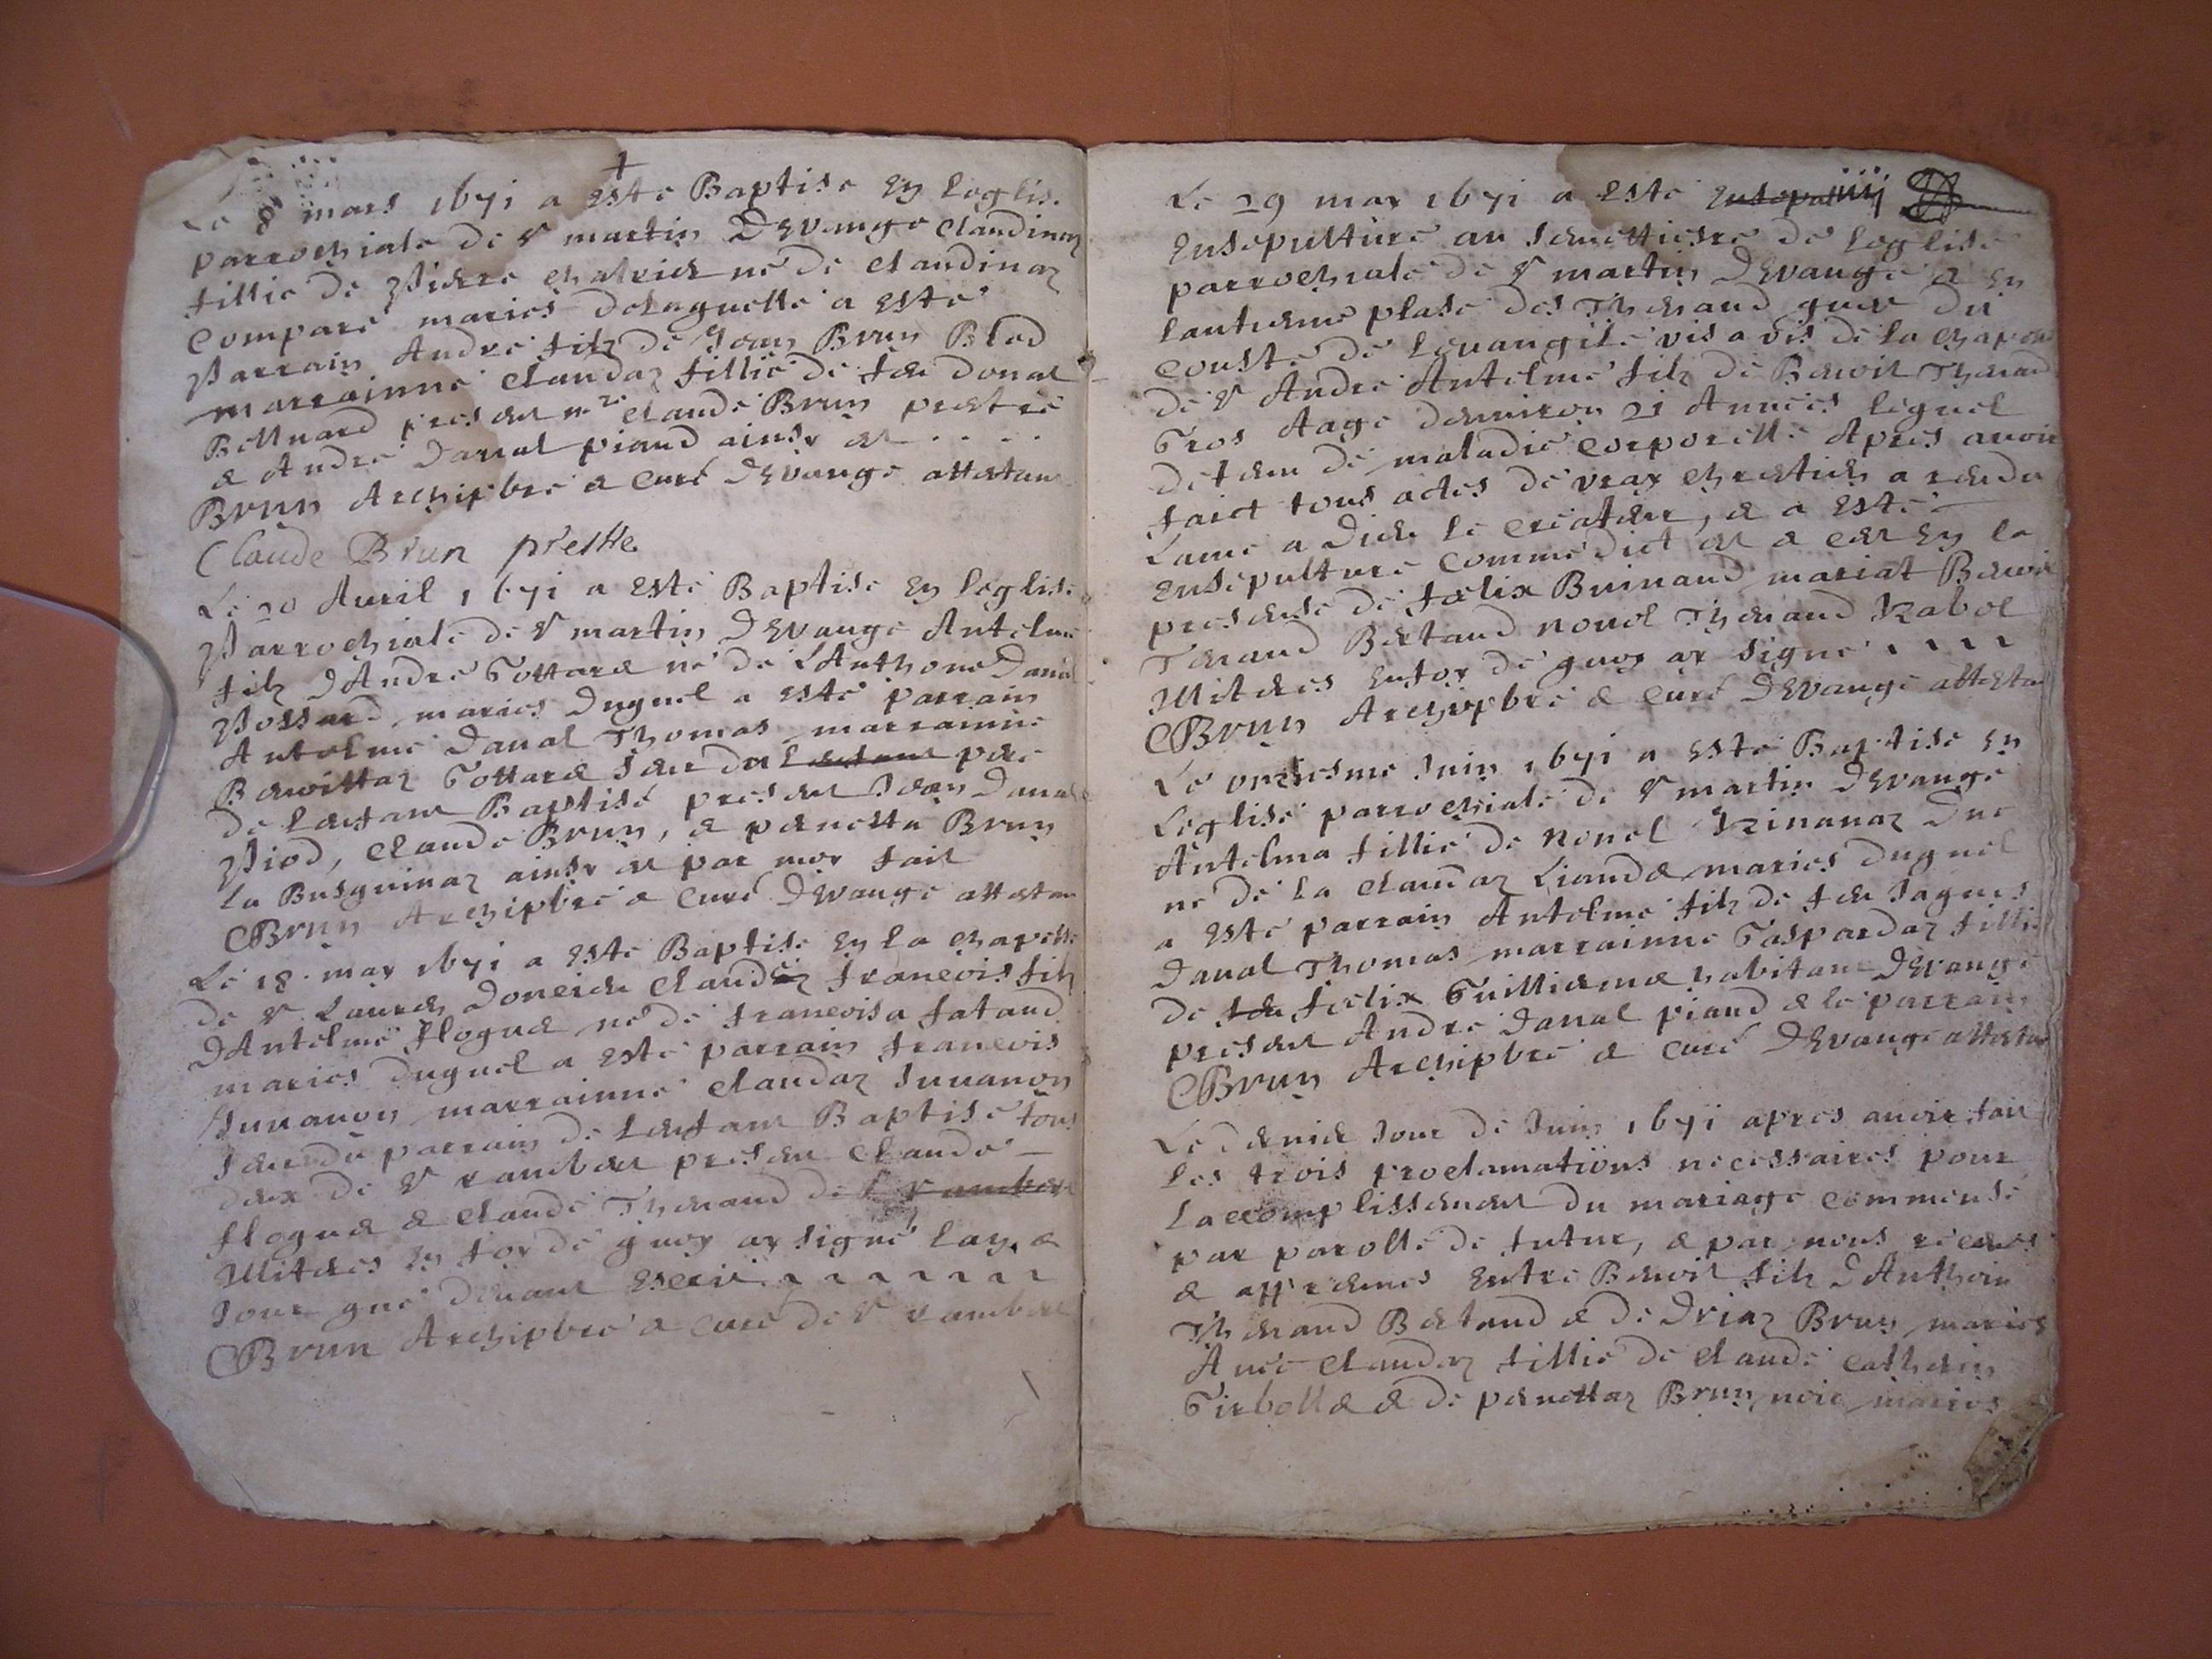 Le 8 mars 1671 a esté Baptisé en leglise
parrochiale de St martin DEvange Claudinaz
fillie de Pierre Chalvier né de Claudinaz
Comparé mariés delaquelle a esté
Parrain André filz de Jean Brun Blod
marrainne Claudaz fillie de feu Donat
Bellnard present mre Claude Brun prestre
& André Danal piaud ainsy est . . . .
Brun Archipbre & Curé DEvange attestant
Claude Brun prestre
Le 20 Auril 1671 a esté Baptisé en leglise
Parrochiale de St martin DEvange Antelme
filz DAndré Gottare né de LAnthone Danal
Possard mariés Duquel a esté parrain
Antelme Danal Thomas marrainne
Benoittaz Gottare seur du Lenfant pere
de Lenfant Baptisé present Jean Danal
Piod, Claude Brun, & pernetta Brun
La Busquinaz ainsy est par moy fait
CBrun Archipbre & Curé DEvange attestant
Le 18 may 1671 a esté Baptisé en la chapelle
de St Laurens Doncieu Claude francois filz
DAntelme floque né de francoisa fataud
mariés duquel a esté parrain francois
Juuanon marrainne Claudaz Juuanon
seur du parrain de Lenfant Baptisé tous
deux de St rambert present Claude
floque & Claude Thenaud de St rambert
Illiteres en foy de quoy ay signé Lan &
Jour que deuant escrit
CBrun Archipbre & curé de St rambert
Le 29 may 1671 a esté Ensepul iiij
Ensepulturé au semettiesre de leglise
parrochiale de St martin DEvange & en
lantienne plase des Thenaud quer du
cousté de Leuangile vis a vis de la chapelle
de St André Antelme filz de Benoit Thenaud
Gros Aagé denuiron 21 Années lequel
detenu de maladie corporelle Apres auoir
faict tous actes de vray chrestien a rendu
Lame a Dieu le createur, & a esté
ensepulturé comme dict est & ce en la
presense de foelix Buinand mariat Benoit
Tenaud Bertand nouel Thenaud Rabol
Illiteres enfoy de quoy ay signé
CBrun Archipbre & Curé DEvange attestant
Le onziesme Juin 1671 a esté Baptisé en
Leglise parrochiale de St martin DEvange
Antelma fillie de Nouel Rinanaz Duc
né de la Claudaz Liaude mariés duquel
a esté parrain Antelme filz de feu Jaques
Danal Thomas marrainne Gaspardaz fillie
de feu foelix Guillierme habitant DEvange
present André Danal piaud & le parrain
CBrun Archipbre & Curé DEvange attestant
Le dernier Jour de Juin 1671 apres auoir fait
les trois proclamations necessaires pour
Lacomplissement du mariage commensé
par parolle de futur, & par nous receues
& entre Benoit filz DAnthoine
Thenaud Bertaud & de Driaz Brun mariés
Auec Claudaz fillie de Claude Catherin
Girbolle & de pernettaz Brun noir mariés